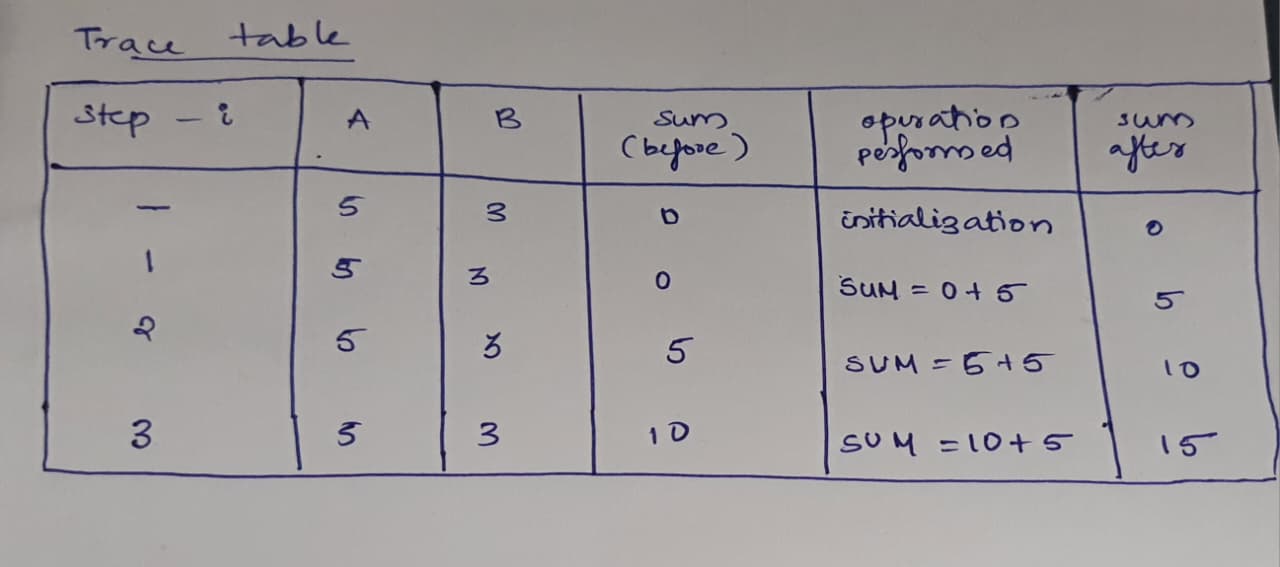 Trace table
step - i A B sum (before) operation performed sum after
- 5 3 0 initialization 0
1 5 3 0 SUM = 0+5 5
2 5 3 5 SUM = 5+5 10
3 5 3 10 SUM = 10+5 15